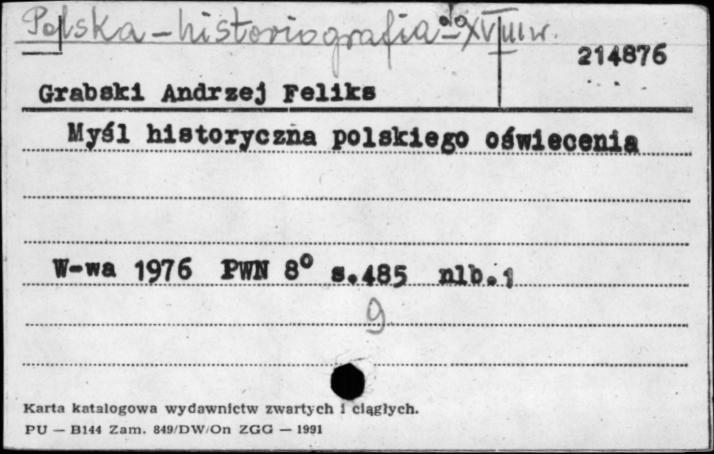 Polska – historiografia – do XVIII w.
214876
Grabski Andrzej Feliks
Myśl historyczna polskiego oświecenia
W-wa 1976 PWN 8° s.485 nlb.1
9
Karta katalogowa wydawnictw zwartych i ciągłych.
PU — B144 Zam. 849/DW/On ZGG — 1991